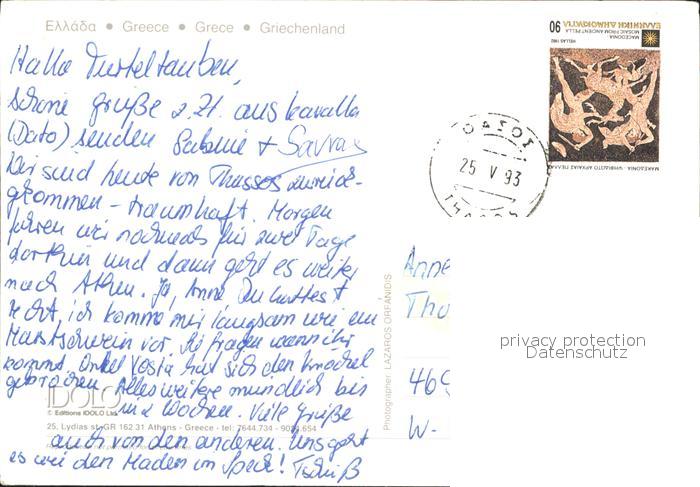 Ελλάδα • Greece • Grece • Griechenland
Hallo Turteltauben,
schöne Grüße z.Zt. aus Kavalla
(Dato) senden Sabine + Savvas
Wir sind heute von Thassos zurück-
gekommen - traumhaft. Morgen
fahren wir nochmals für zwei Tage
dorthin und dann geht es weiter
nach Athen. Ja, Anne Du hattest
recht, ich komme mir langsam wie ein
Mastschwein vor. Sie fragen wann ihr
kommt. Onkel Kosta hat sich den Knöchel
gebrochen. Alles weitere mündlich bis
in 2 Wochen. Viele Grüße
auch von den anderen. Uns geht
es wie den Maden im Speck! Tschüß
IDOLO
© Editions IDOLO Ltd.
25, Lydias st. GR 162 31 Athens - Greece - tel: 7644.734 - 9034.654
Photographer: LAZAROS ORFANIDIS
90
ΕΛΛΗΝΙΚΗ ΔΗΜΟΚΡΑΤΙΑ
MACEDONIA
MOSAIC FROM ANCIENT PELLA
HELLAS 1992
ΜΑΚΕΔΟΝΙΑ - ΨΗΦΙΔΩΤΟ ΑΡΧΑΙΑΣ ΠΕΛΛΑΣ
ΘΑΣΟΣ
25 V 93
Anne
Tho
469
W-
privacy protection
Datenschutz